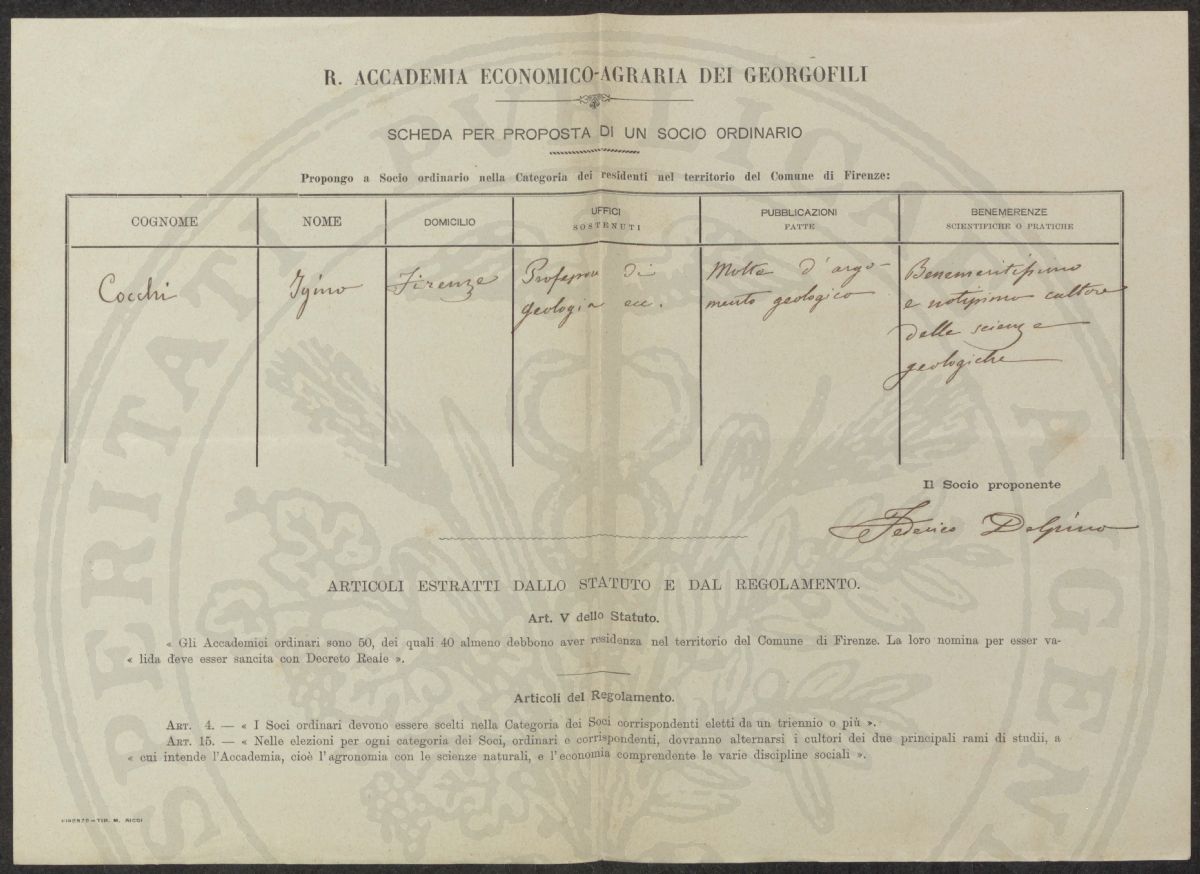 R. ACCADEMIA ECONOMICO-AGRARIA DEI GEORGOFILI
SCHEDA PER PROPOSTA DI UN SOCIO ORDINARIO
Propongo a Socio ordinario nella Categoria dei residenti nel territorio del Comune di Firenze:
COGNOME
NOME
DOMICILIO
UFFICI
SOSTENUTI
PUBBLICAZIONI
FATTE
BENEMERENZE
SCIENTIFICHE O PRATICHE
Cocchi
Igino
Firenze
Professore di
geologia ecc.
Molte d'argo-
mento geologico
Benemeritissimo
e notissimo cultore
delle scienze
geologiche
Il Socio proponente
Federico Delpino
ARTICOLI ESTRATTI DALLO STATUTO E DAL REGOLAMENTO.
Art. V dello Statuto.
« Gli Accademici ordinari sono 50, dei quali 40 almeno debbono aver residenza nel territorio del Comune di Firenze. La loro nomina per esser va-
« lida deve esser sancita con Decreto Reale ».
Articoli del Regolamento.
ART. 4. — « I Soci ordinari devono essere scelti nella Categoria dei Soci corrispondenti eletti da un triennio o più ».
ART. 15. — « Nelle elezioni per ogni categoria dei Soci, ordinari e corrispondenti, dovranno alternarsi i cultori dei due principali rami di studii, a
« cui intende l'Accademia, cioè l'agronomia con le scienze naturali, e l'economia comprendente le varie discipline sociali ».
FIRENZE — TIP. M. RICCI
PROSPERITATI PVBLICAE AVGENDAE